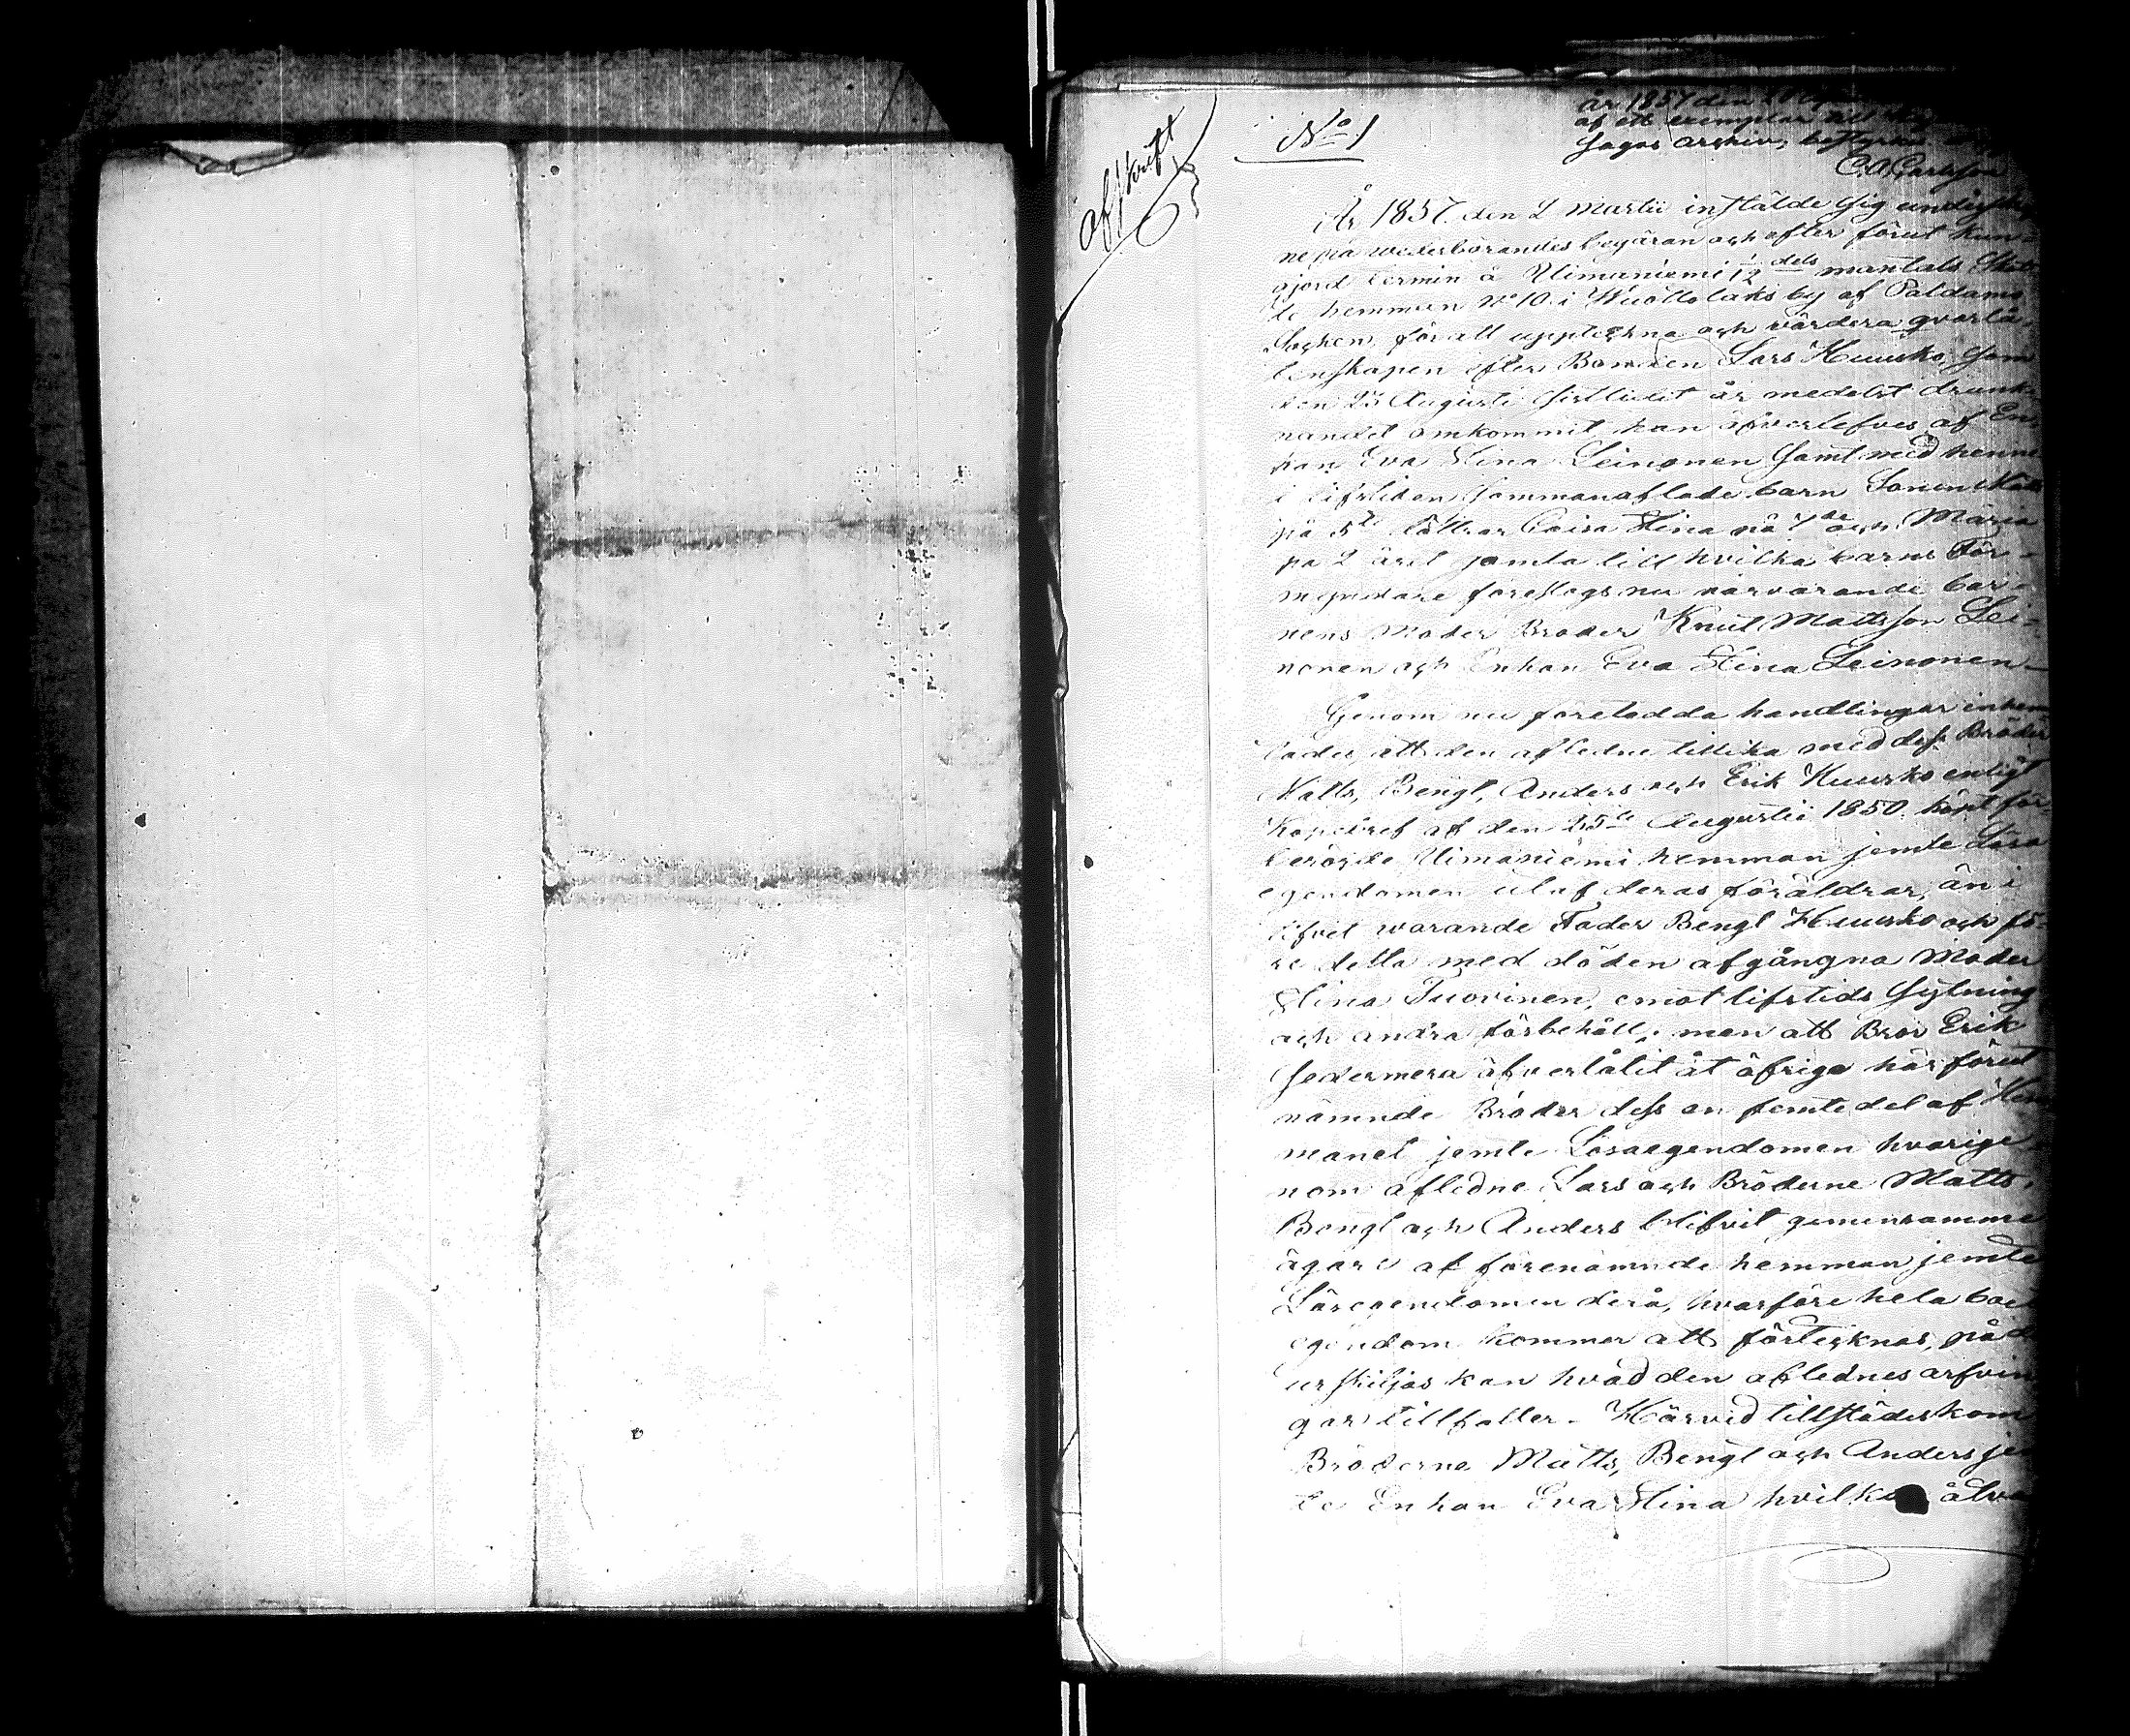 Afskrift
No 1
år 1857 den
af ett exemplar till
Sagos arckiv, bestyrkes
C. A. Carlsson
År 1857 den 2 Martii instälde sig undirskrif
ne på wederbörandes begäran och efter förut kun=
gjord termin å Uimaniemi 1/2 dels mantals Skatte
hemman No 10 i Wuottolaks by af Paldamo
Socken, för att uppteckna och värdera qvarlå=
tenskapen efter Bonden Lars Huusko, som
den 23 Augusti sistlidit år medelst drunk=
nandet omkommit han öfverlefves af En=
kan Eva Stina Leinonen samt med henne
i lifstiden sammanaflade barn Sonen
på 5te döttrar Caisa Stina på 7de och Maria
på 2 året jemla till hvilka barns För=
myndare föreslogs nu närvarande bar=
nens Moder Broder Knut Mattsson Lei=
nonen och Enkan Eva Stina Leinonen
Genom nu företedda handlingar inhem=
tades, att den afledne tillika med dess Bröder
Matts, Bengt, Anders och Erik Huusko enligt
Köpebref af den 15te Augustii 1850 köpt för=
berörde Uimaniemi hemman jemte Lösa
egendomen utaf deras föräldrar, än i
lifvet warande Fader Bengt Huusko och fö=
re detta med döden afgångna Moder
Stina Tuovinen, emot lifstids sytning
och andra förbehåll; men att Bror Erik
sedermera öfverlåtit åt öfrige härförut
nämnde Bröder dess en femtedel af Hem
manet jemte Lösaegendomen hvarige=
nom afledne Lars och Bröderne Matts,
Bengt och Anders blifvit gemensamme
ägare af förenämnde hemman jemte
Lösegendomen derå, hvarföre hela boet
egendom kommer att förtecknas, på d
urskiljas kan hvad den aflednes arfvin
gar tillfaller. Härvid tillstädeskom
Bröderna Matts, Bengt och Anders je
te Enkan Eva Stina hvilka